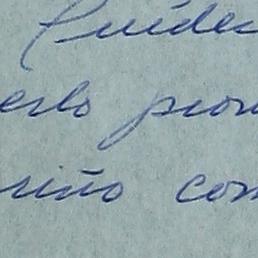 Cuíde
erlo pron
riño com